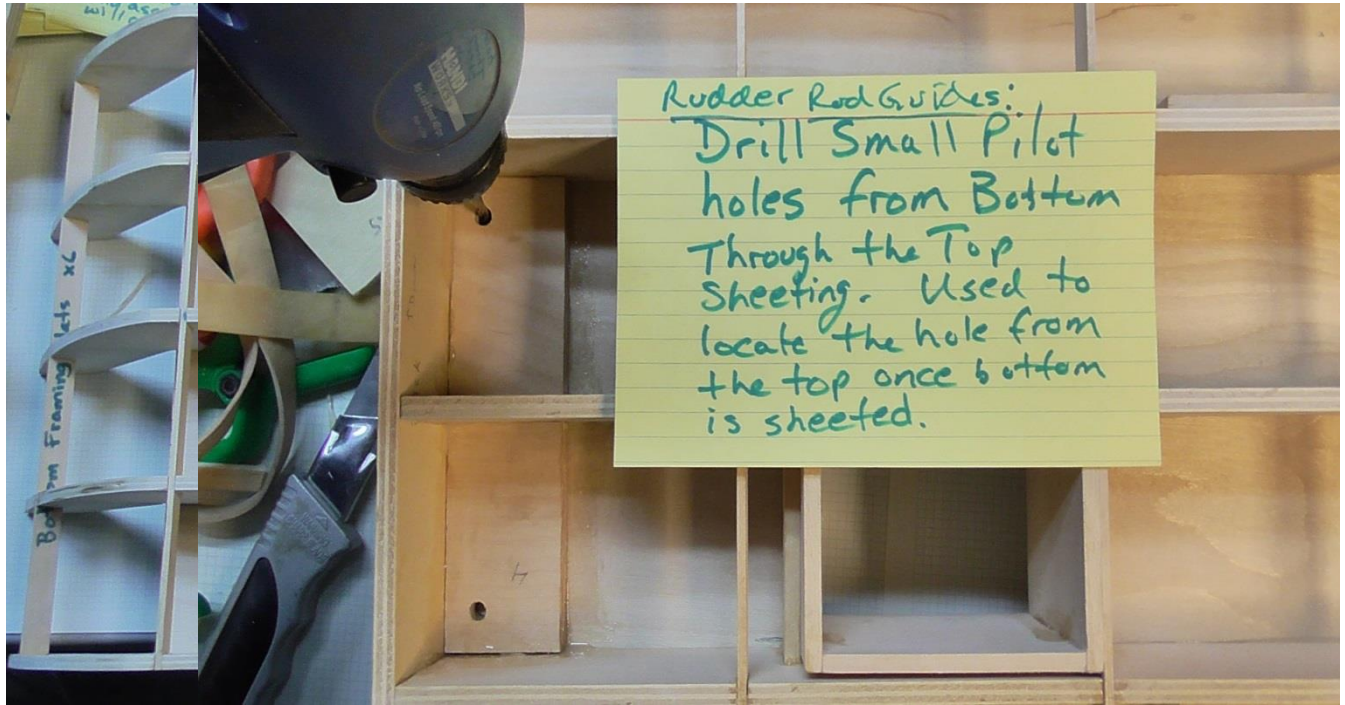 Rudder Rod Guides:
Drill Small Pilot
holes from Bottom
Through the Top
Sheeting. Used to
locate the hole from
the top once bottom
is sheeted.
Framing
x6
4